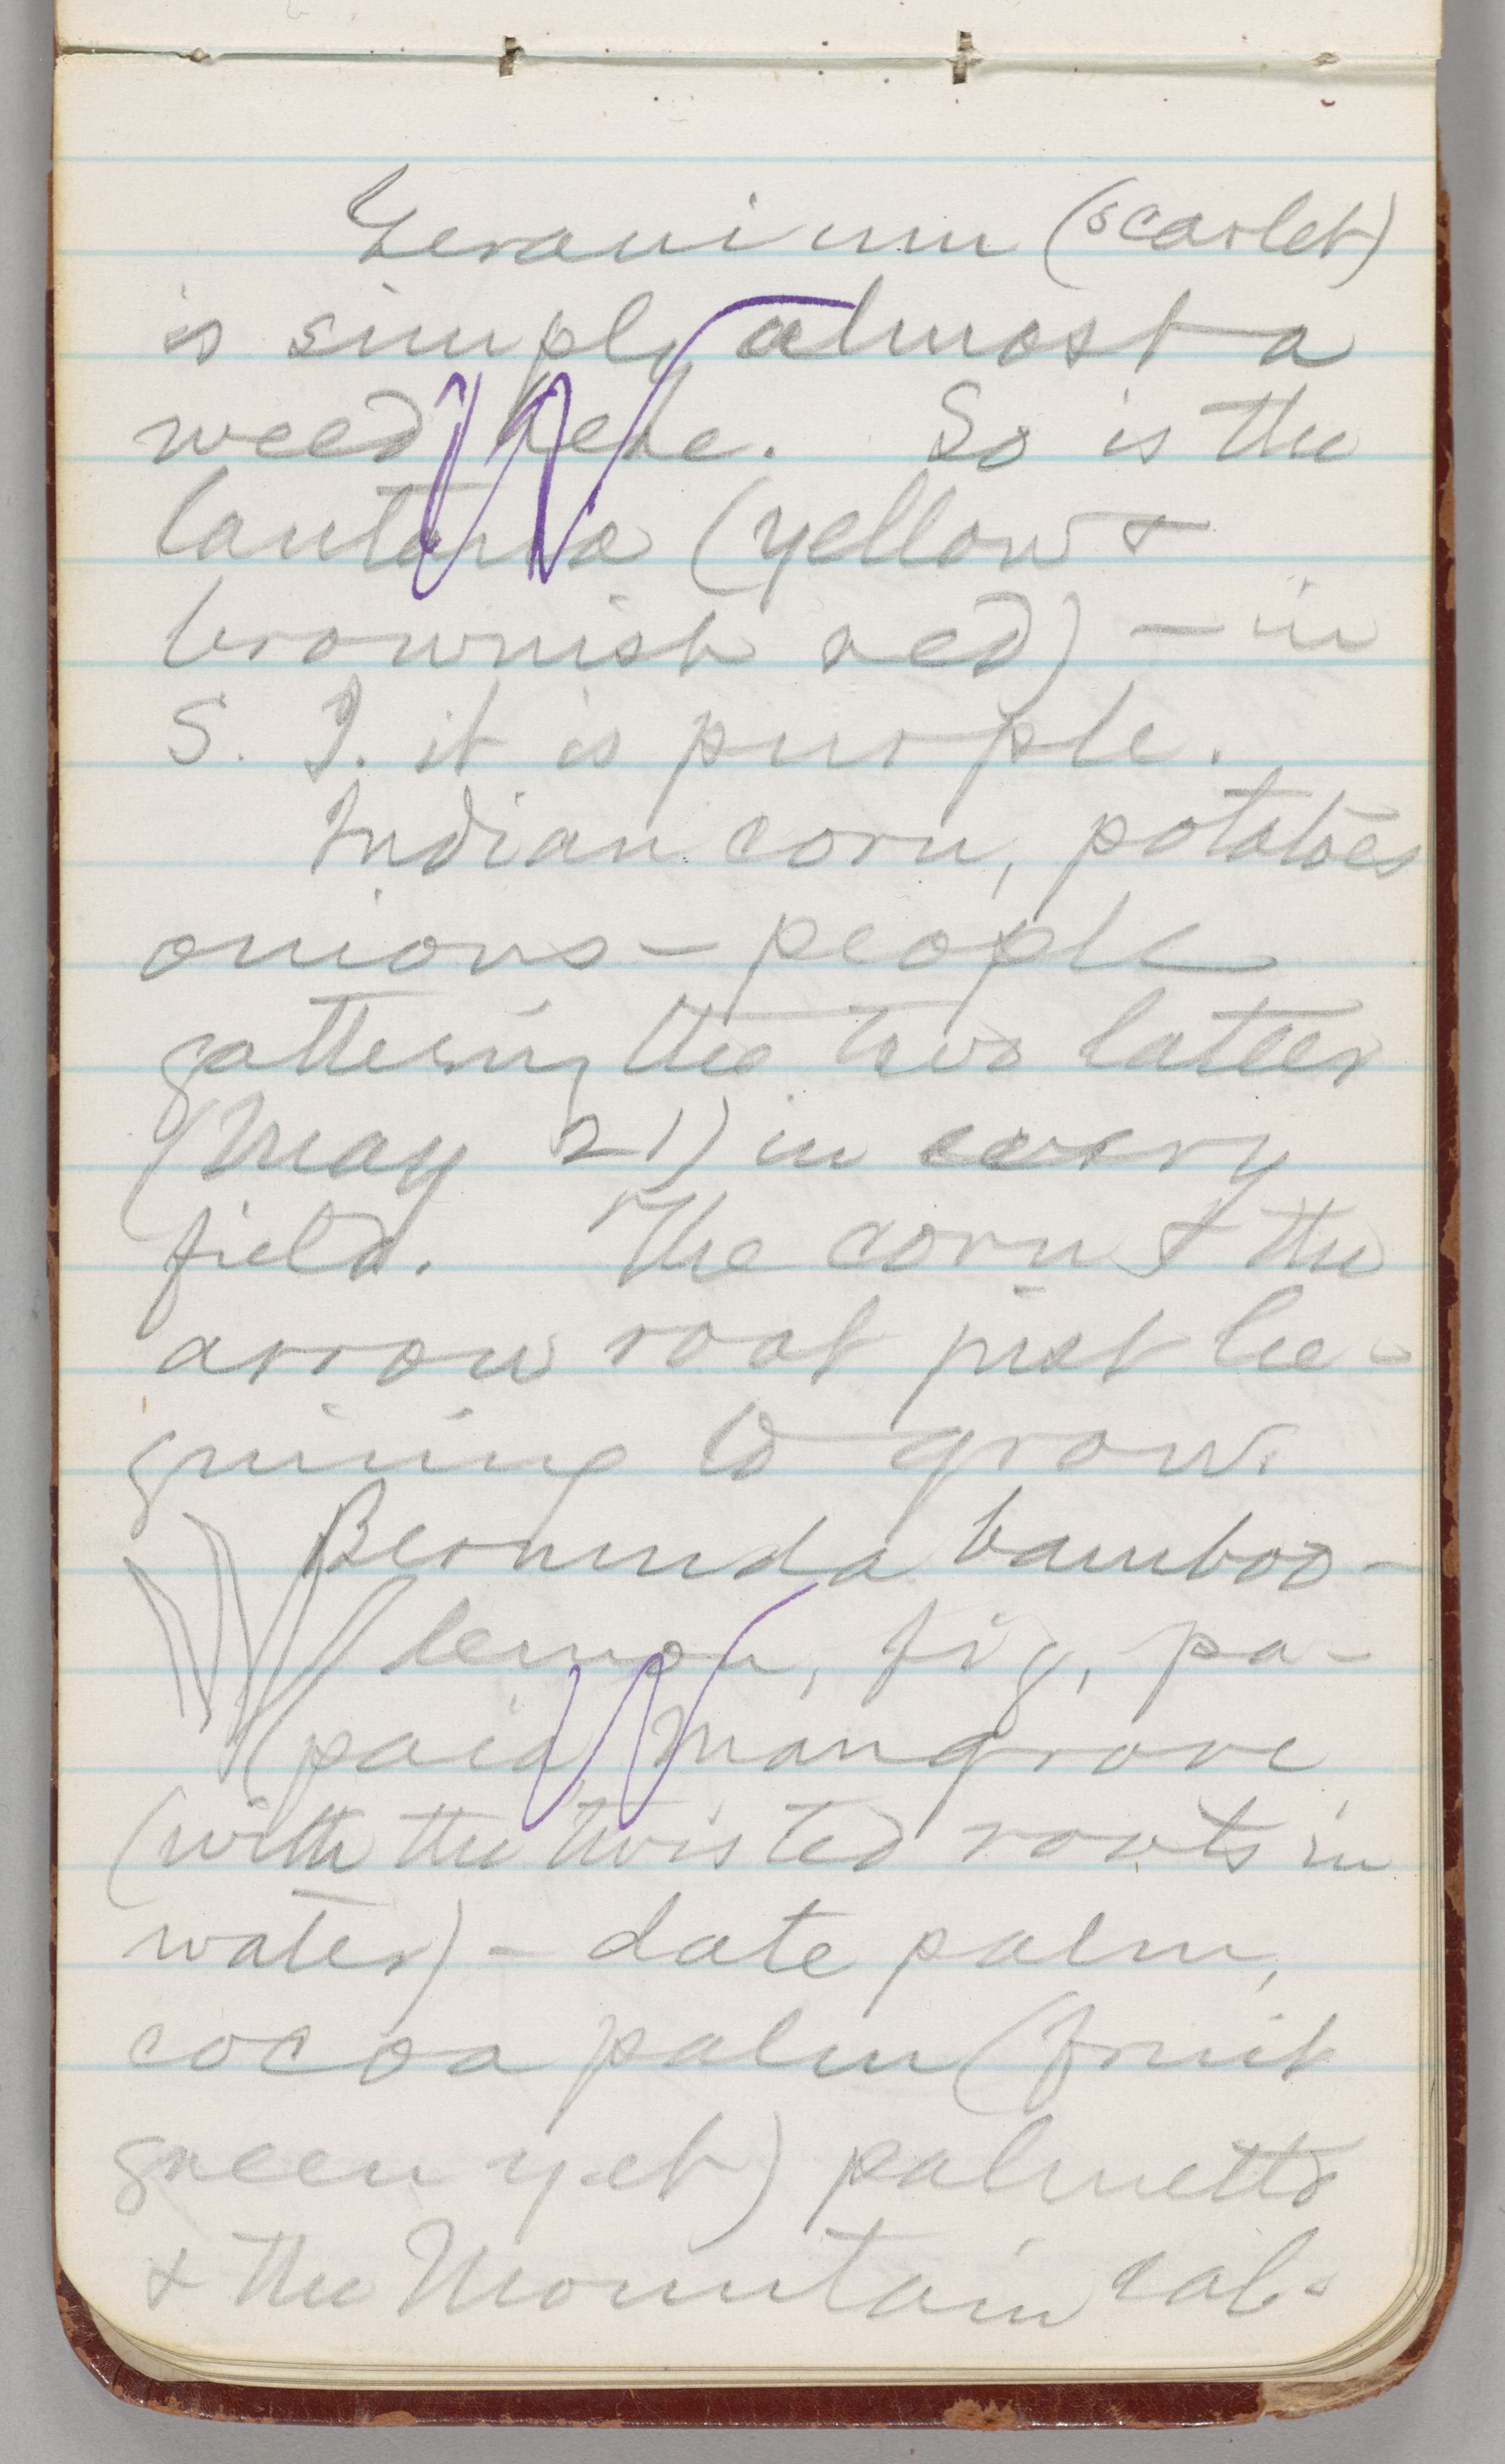 Geranium (scarlet)
is simply almost a
weed here. So is the
lantana (yellow &
brownish red) — in
S. I. it is purple.
Indian corn, potatoes
onions — people
gathering the two latter
(May 21) in every
field. The corn & the
arrow root just be-
gining to grow.
Bermuda bamboo —
lemon, fig, pa-
paia, mangrove
(with the twisted roots in
water) — date palm,
cocoa palm (fruit
green yet) palmetto
& the Mountain cab-